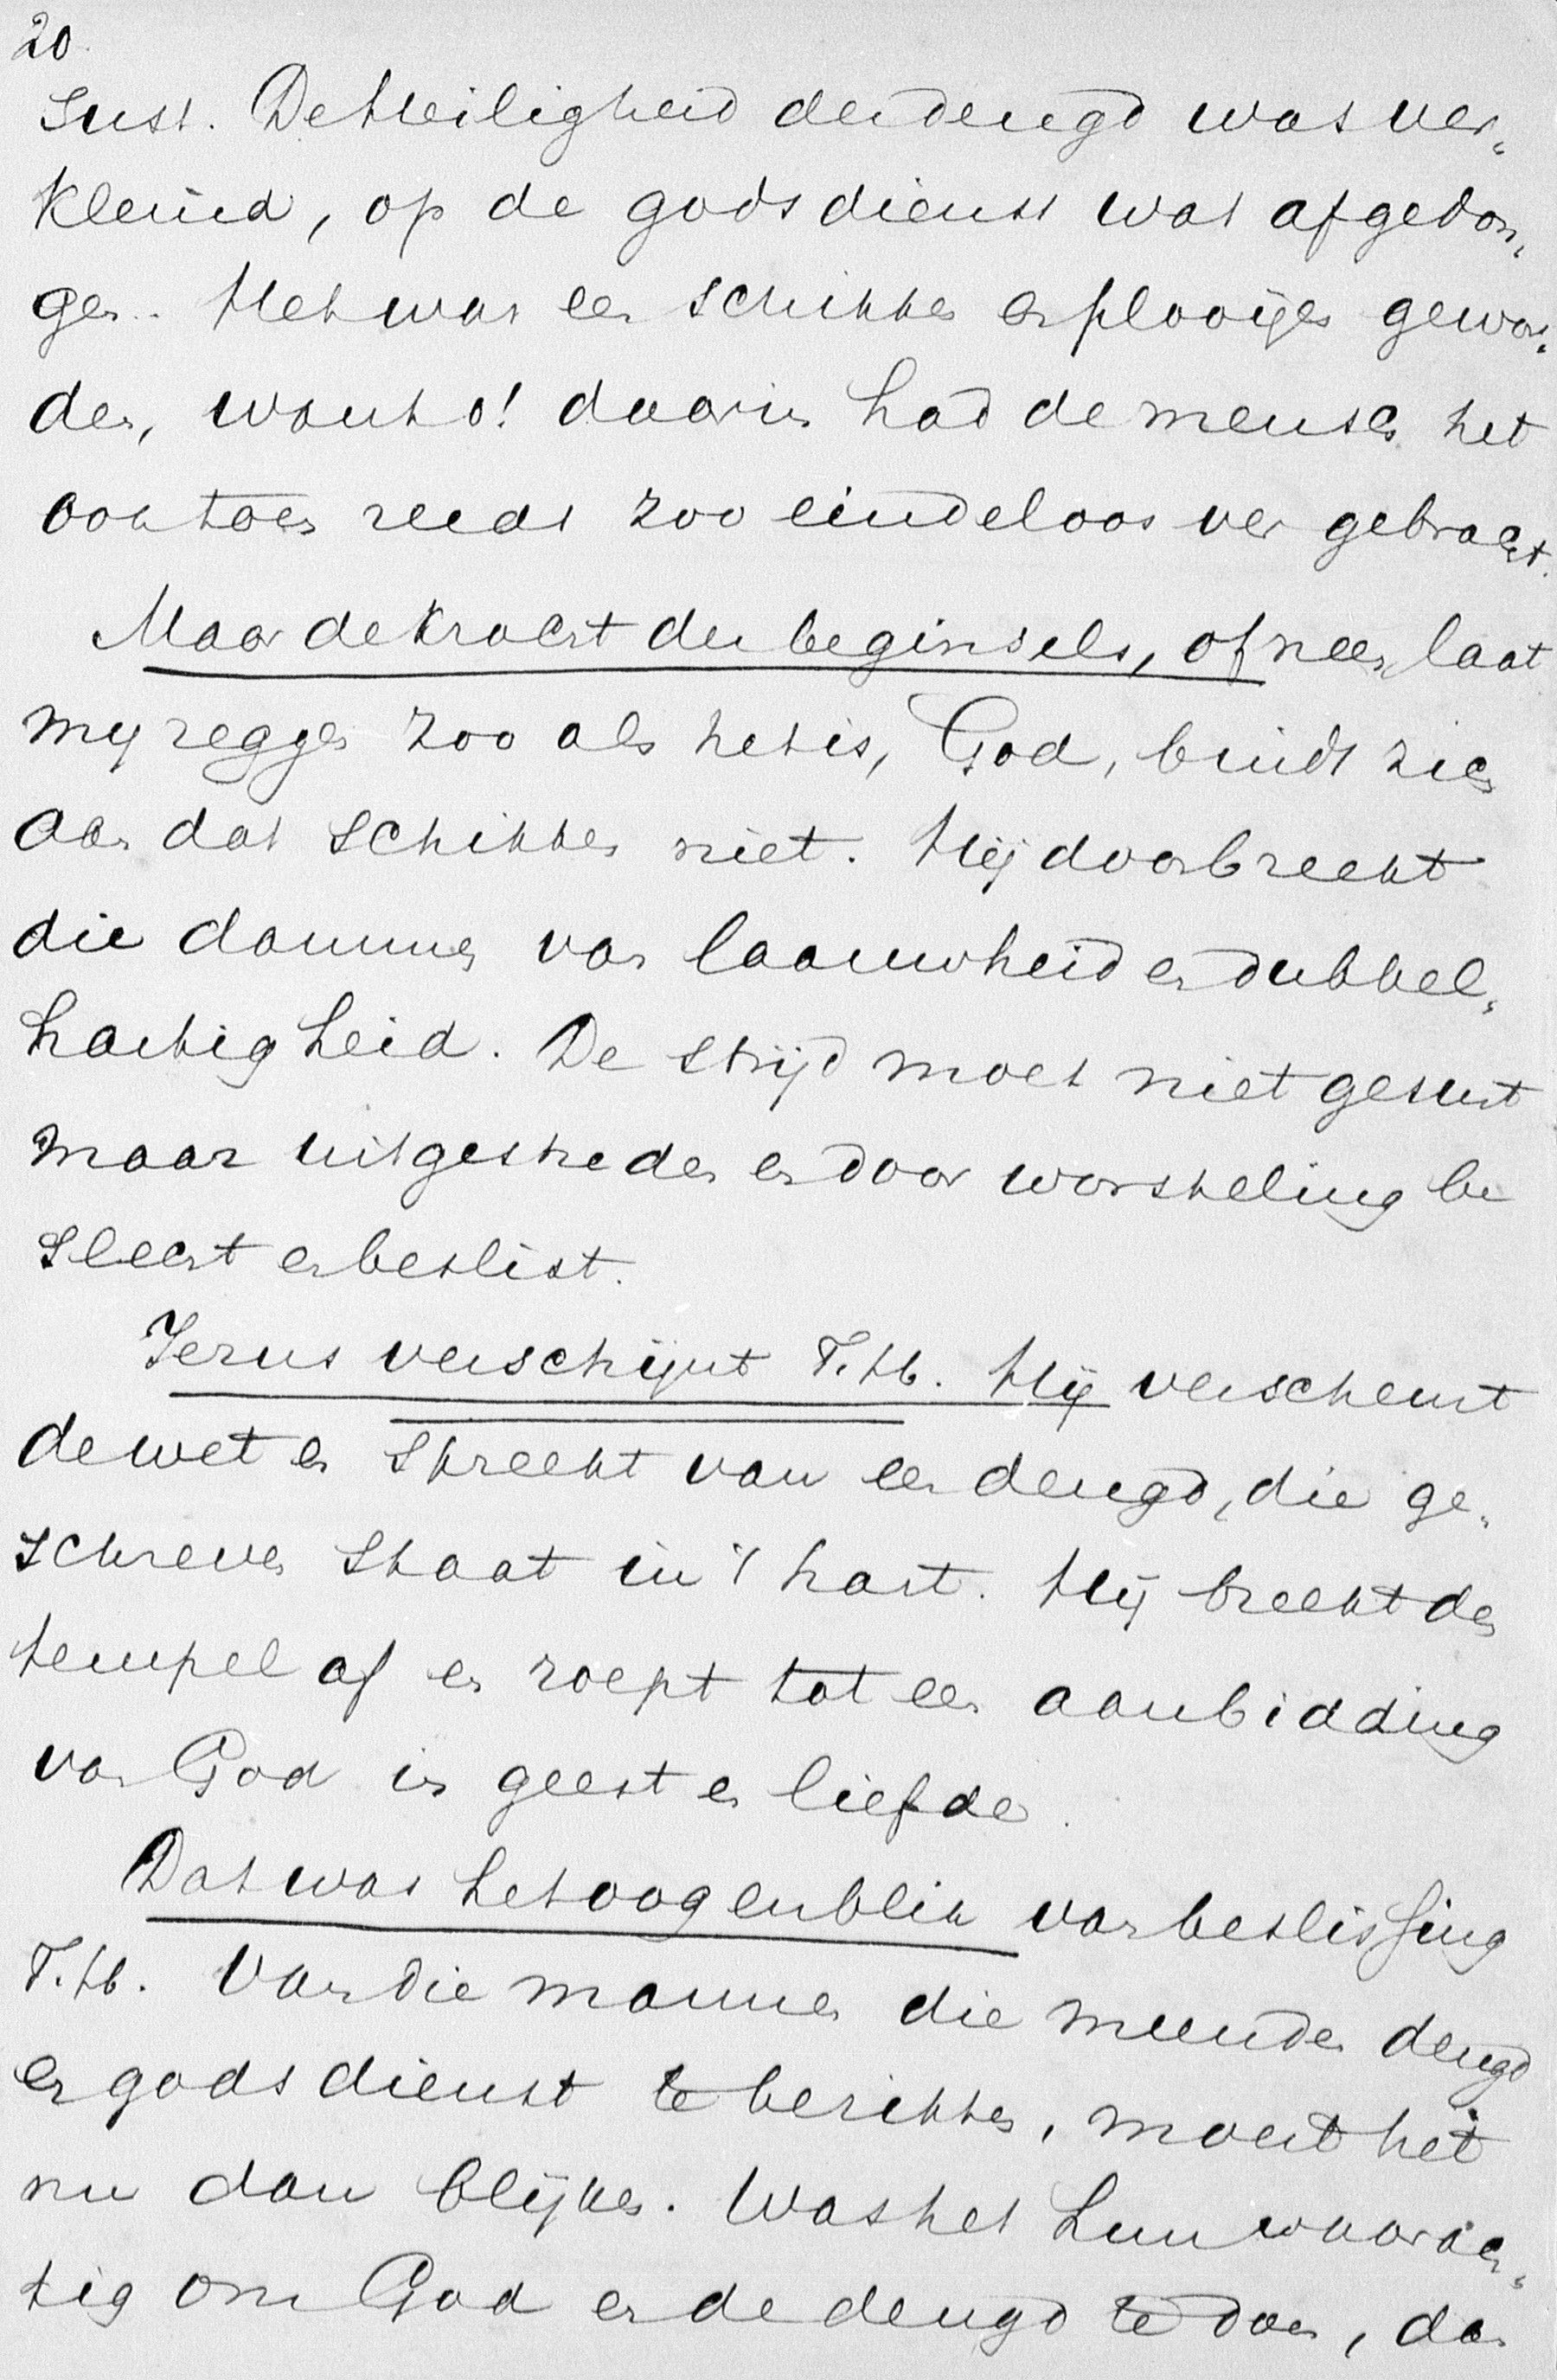 20
sust. De Heiligheid der deugd was ver„
kleind, op de godsdienst was afgedon„
gen. Het was een schikken en plooijen gewor„
den, want o! daarin had de mensch het
ook toen reeds zoo eindeloos ver gebracht.
Maar de kracht der beginsels, of neen, laat
mij zeggen zoo als het is, God, bindt zich
aan dat schikken niet. Hij doorbreekt
die dammen van laauwheid en dubbel„
hartigheid. De strijd moet niet gesust
maar uitgestreden en door worsteling be
slecht en beslist.
Jezus verschijnt T. H. Hij verscheurt
de wet en spreekt van een deugd, die ge„
schreven staat in 't hart. Hij breekt den
tempel af en roept tot een aanbidding
van God in geest en liefde.
Dat was het oogenblik van beslissing
T. H. Van die mannen die meenden deugd
en godsdienst te beschikken, moest het
nu dan blijken. Was het hun waarach„
tig om God en de deugd te doen, dan